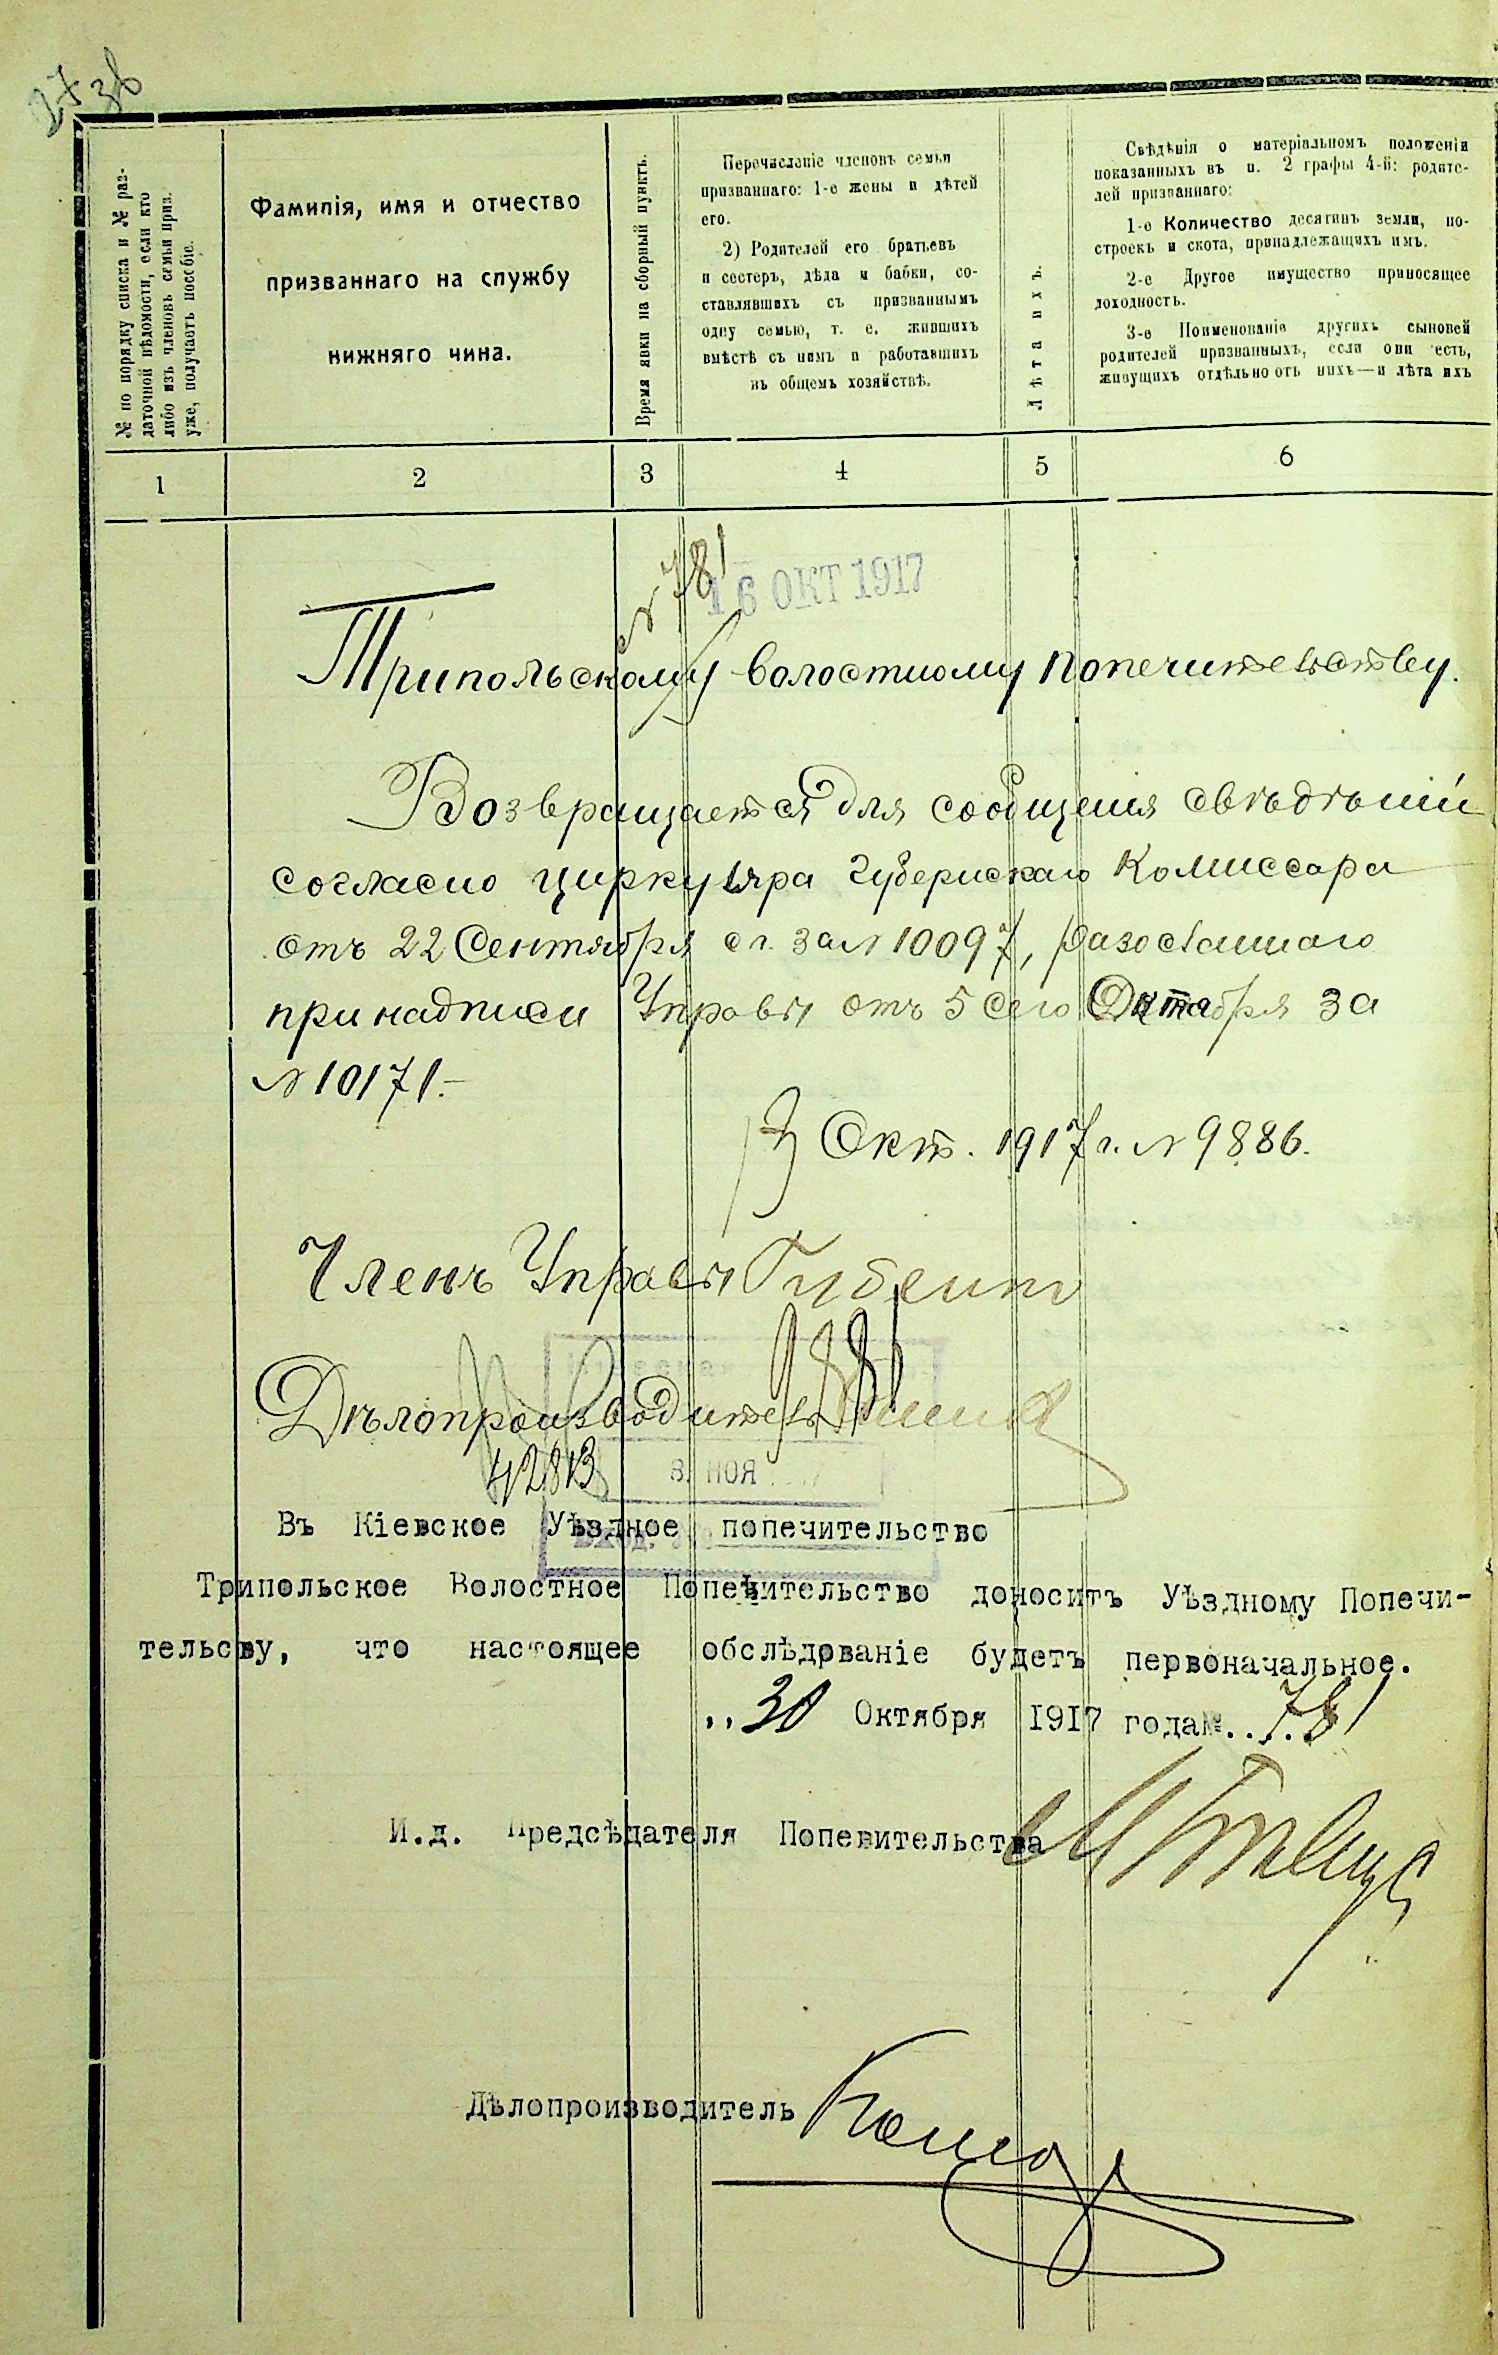 27 зв
№ по порядку списка и № раз-
даточной вѣдомости, если кто
либо изъ членовъ семьи приз.
уже, получаетъ пособіе.
Фамилія, имя и отчество
призваннаго на службу
нижняго чина.
Время явки на сборный пунктъ.
Перечисленіе членовъ семьи
призваннаго: 1-е жены и дѣтей
его.
2) Родителей его братьевъ
и сестеръ, дѣда и бабки, со-
ставлявшихъ съ призваннымъ
одну семью, т. е. жившихъ
вмѣстѣ съ нимъ и работавшихъ
въ общемъ хозяйствѣ.
Лѣта ихъ.
Свѣдѣнія о матеріальномъ положеніи
показанныхъ въ п. 2 графы 4-й: родите-
лей призваннаго:
1-е Количество десятинъ земли, по-
строекъ и скота, принадлежащихъ имъ.
2-е Другое имущество приносящее
доходность.
3-е Поименованіе другихъ сыновей
родителей призванныхъ, если они есть,
живущихъ отдѣльно отъ нихъ—и лѣта ихъ
1 2 3 4 5 6
№ 781
16 ОКТ 1917
Трипольскому волостному попечительству.
Возвращается для сообщенія свѣдѣній
согласно циркуляра Губернскаго Комиссара
отъ 22 Сентября с г. за № 10097, разосланнаго
при надписи Управы отъ 5 сего Октября за
№ 10171.-
13 Окт. 1917 г. № 9886.
Членъ Управы
Дѣлопроизводитель
9881
4283
8 НОЯ
Вход.
Въ Кіевское Уѣздное попечительство
Трипольское Волостное Попечительство доноситъ Уѣздному Попечи-
тельсву, что настоящее обслѣдованіе будетъ первоначальное.
,,30 Октября 1917 года№...781
И.д. Предсѣдателя Попевительства
Дѣлопроизводитель